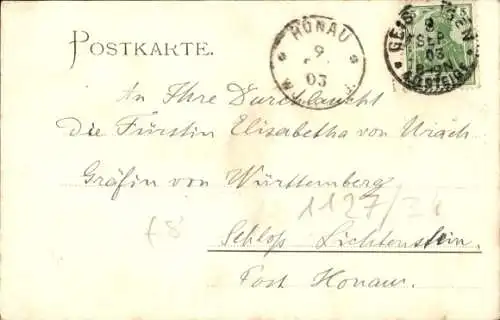 POSTKARTE.
HONAU
9
03
GEISLINGEN
9
SEP
03
5
An Ihre Durchlaucht
die Fürstin Elisabetha von Urach
Gräfin von Württemberg
1127/
£8
Schloß Lichtenstein.
Post Honau.